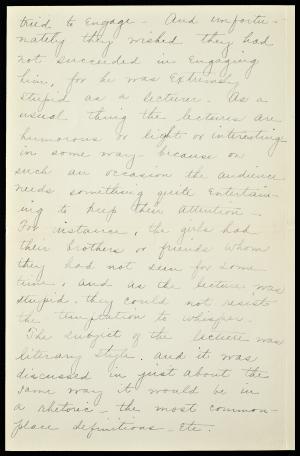 tried to engage - And unfortu-
nately they wished they had
not succeeded in engaging
him, for he was extremely
stupid as a lecturer. As a
usual thing the lectures are
humorous or light or interesting
in some way - because on
such an occasion the audience
needs something quite entertain-
ing to keep their attention -
For instance, the girls had
their brothers or friends whom
they had not seen for some
time, and as the lecture was
stupid - they could not resist
the temptation to whisper.
The subject of the lecture was
literary style. and it was
discussed in just about the
same way it would be in
a rhetoric - the most common-
place definitions - etc.